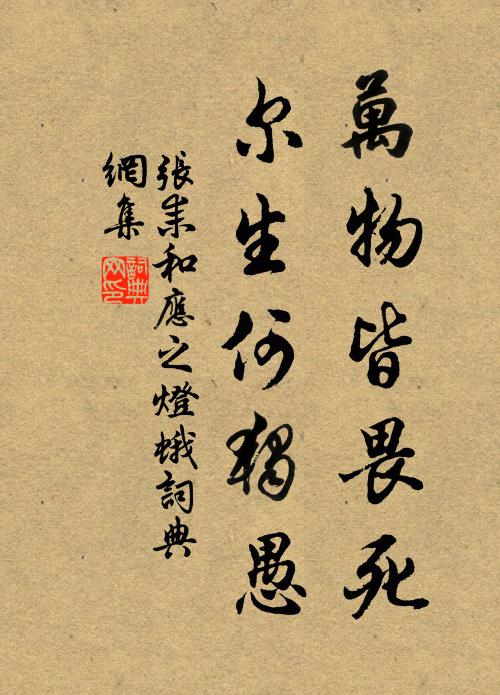 萬物皆畏死
尔生何獨愚
張耒和應之燈蛾詞典
網集
詞典
网印